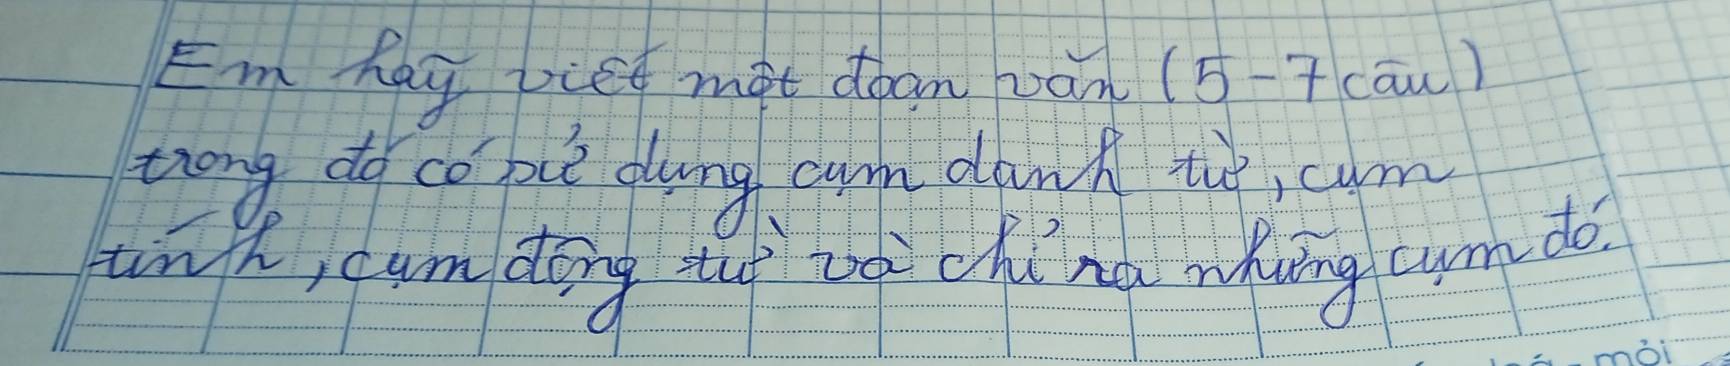 Em hãy viết một đoạn văn (5-7 câu)
trong đó có sử dụng cụm danh từ, cụm
tính, cụm động từ và chỉ ra những cụm đó.
mỏi